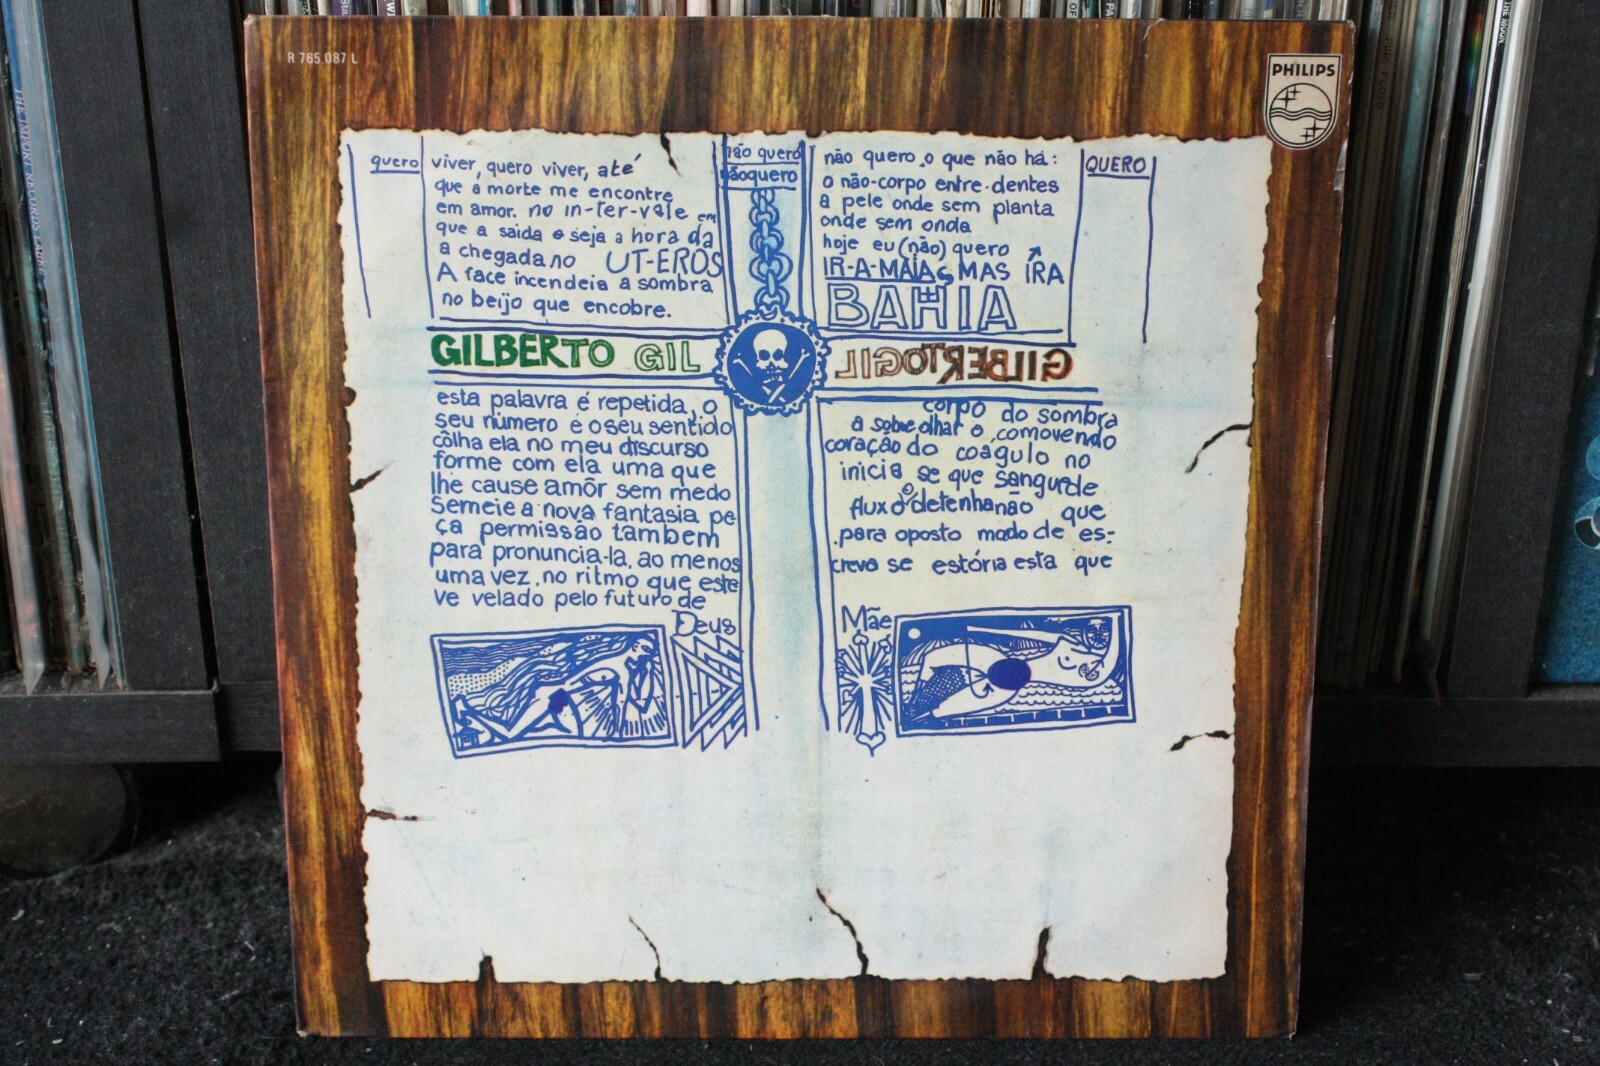 R 765.087 L
PHILIPS
quero
viver, quero viver, até
que a morte me encontre
em amor. no in-ter-vale em
que a saida e seja a hora da
a chegada no UT-EROS
A face incendeia a sombra
no beijo que encobre.
não quero
nãoquero
não quero o que não há:
o não-corpo entre-dentes
a pele onde sem planta
onde sem onda
hoje eu (não) quero
IR-A-MAIA, MAS IRA
BAHIA
QUERO
GILBERTO GIL
GILBERTO GIL
esta palavra é repetida, o
seu número é o seu sentido
côlha ela no meu discurso
forme com ela uma que
lhe cause amôr sem medo
Semeie a nova fantasia pe
ça permissão tambem
para pronuncia-la, ao menos
uma vez, no ritmo que este
ve velado pelo futuro de
Deus
corpo do sombra
a sobre olhar o comovendo
coração do coagulo no
inicia se que sangue de
fluxo o detenha não que
para oposto modo de es-
creva se estória esta que
Mãe
THE IMPORT RECORDS LABEL
PINK FLOYD
THE MOON